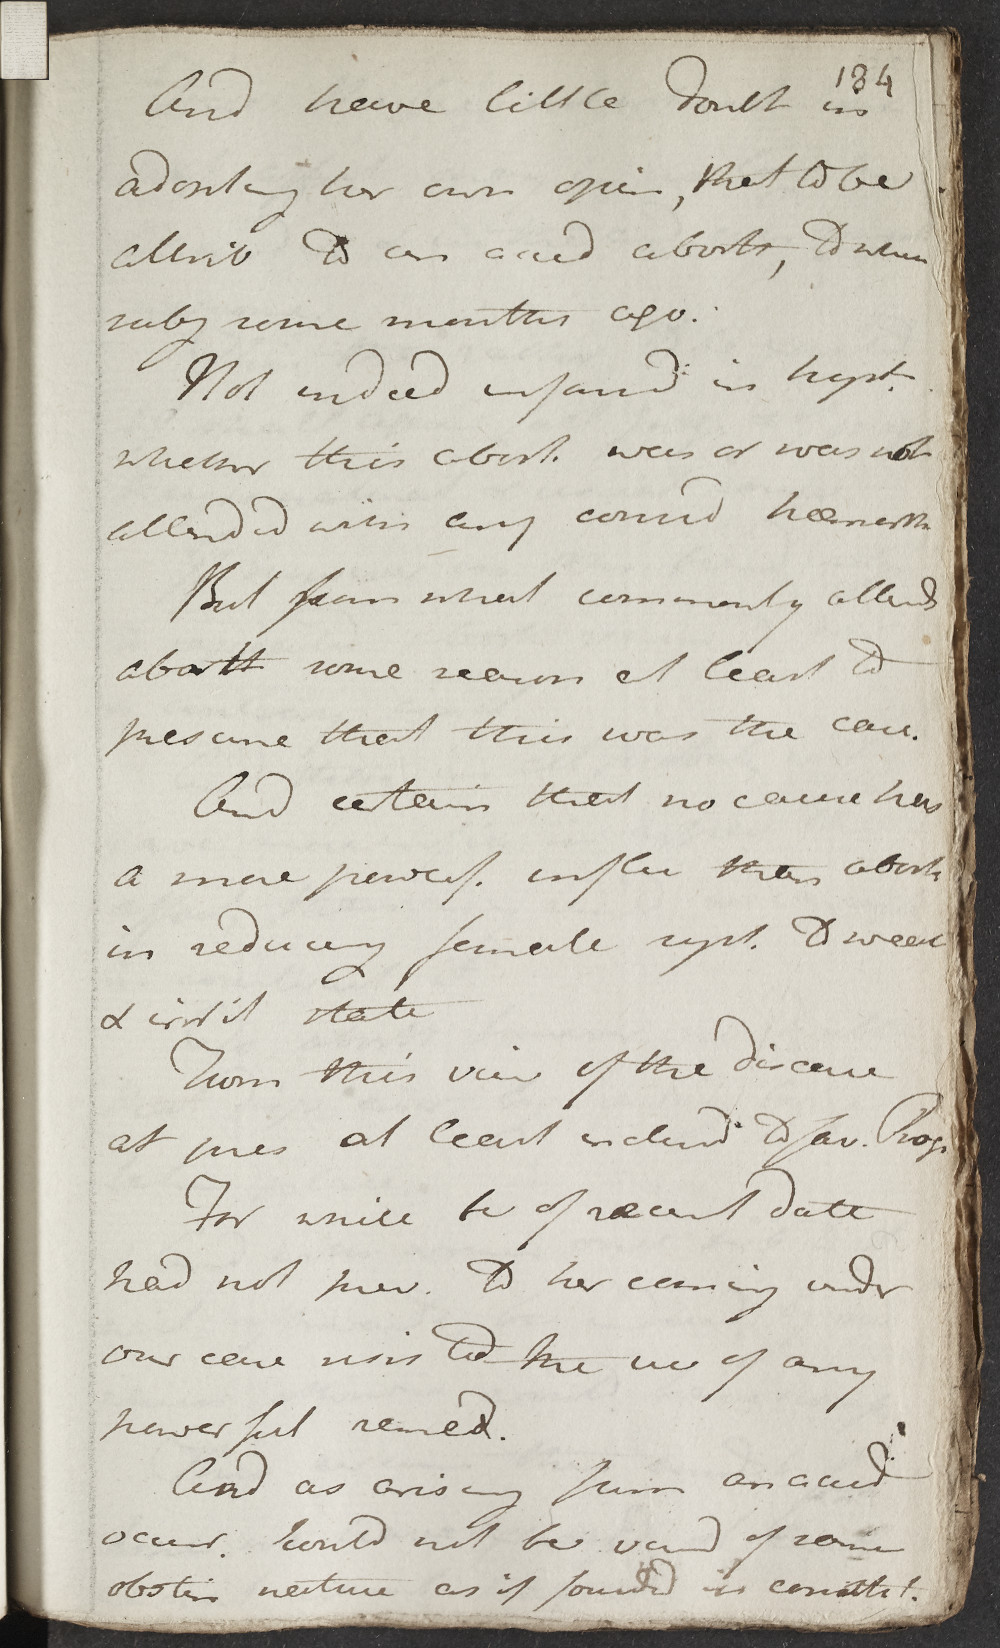 184
And have little doubt in
adopting her own opin, that to be
attrib to an accid abort, to when
subj some months ago.
Not indeed inform'd in hyst.
whether this abort. was or was not
attended with any consid haemorrh
But from what commonly attends
abortt some reason at least to
presume that this was the case.
And certain that no cause has
a more powerf. influ than abort
in reducing female syst. to weak
& irrit state
From this view of the disease
at pres at least inclin'd to fav. Prog.
For while be of recent date
had not prev. to her coming under
our care resisted the use of any
powerful remed.
And as arising from an accid
occur. would not be of same
obstin nature as if founded in constit.